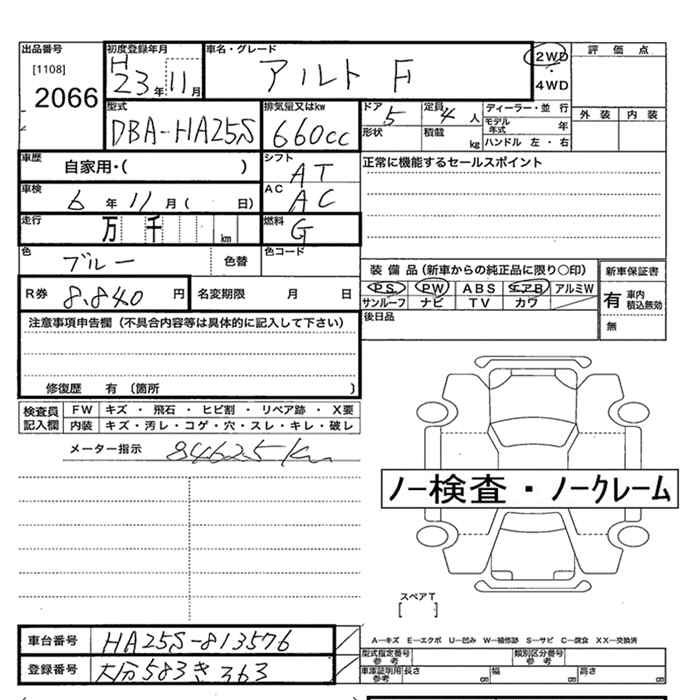 出品番号 初度登録年月 車名・グレード 2WD 評価点
[1108] H 23年11月 アルト F ・ 4WD
2066 外装 内装
型式 排気量又はkw ドア 5 定員 4 人 ディーラー・並行
DBA-HA25S 660cc 形状 積載 kg モデル年式 年
ハンドル 左・右
車歴 自家用・( ) シフト AT 正常に機能するセールスポイント
車検 6年11月( 日) AC AC
走行 万 千 km 燃料 G
色 ブルー 色替 色コード
装備品(新車からの純正品に限り○印) 新車保証書
R券 8,840 円 名変期限 月 日 PS PW ABS エアB アルミW 有 車内積込無効
サンルーフ ナビ TV カワ 無
注意事項申告欄(不具合内容等は具体的に記入して下さい) 後日品
修復歴 有 (箇所 )
検査員記入欄 FW キズ・飛石・ヒビ割・リペア跡・X要
内装 キズ・汚レ・コゲ・穴・スレ・キレ・破レ
メーター指示 84625km
ノー検査・ノークレーム
スペアT
[ ]
車台番号 HA25S-813576 A─キズ E─エクボ U─凹み W─補修跡 S─サビ C─腐食 XX─交換済
型式指定番号 参考 類別区分番号 参考
登録番号 大分583き363 車庫証明用 参考 長さ cm 幅 cm 高さ cm